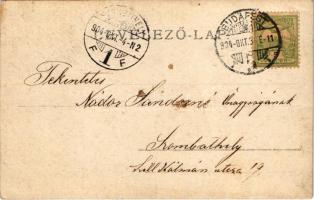 LEVELEZŐ-LAP
BUDAPEST
904 OKT.
1
F F
Tekintetes
Nádor Sándorné Nagyságának
Szombathely
Széll Kálmán utcza 19